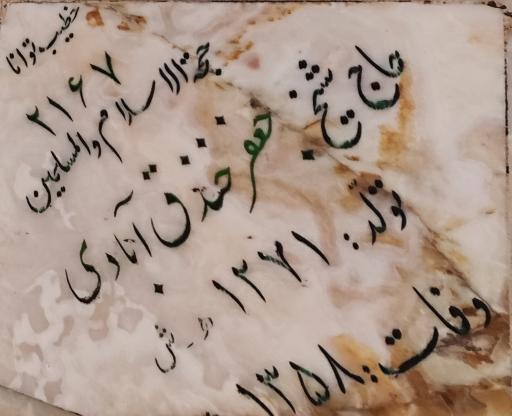 خطیب توانا
۲۱۶۷
حجةالاسلام والمسلمین
حاج شیخ
جعفر خندق آبادی
تولد: ۱۲۷۱ ه‍. ش
وفات: ۱۳۵۸